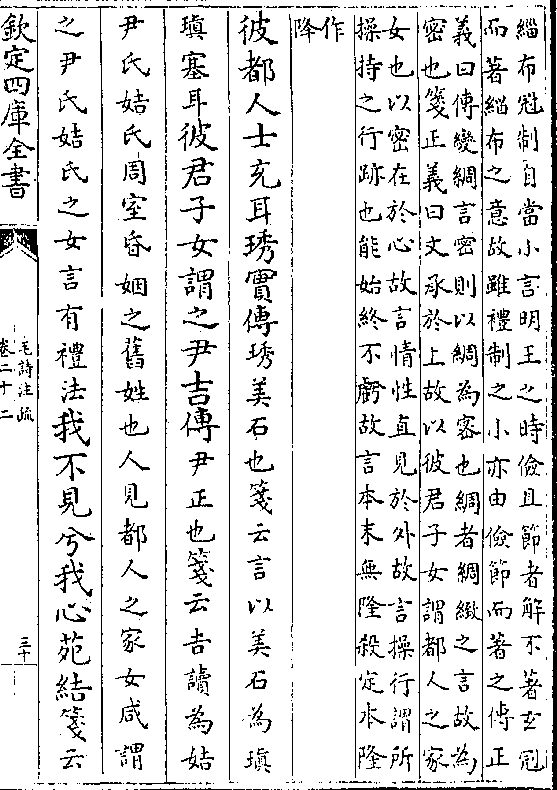 緇布冠制自當小言明王之時儉且節者解不著玄冠
而著緇布之意故雖禮制之小亦由儉節而著之傳正
義曰傳變綢言密則以綢為密也綢者綢緻之言故為
密也箋正義曰文承於上故以彼君子女謂都人之家
女也以密在於心故言情性直見於外故言操行謂所
操持之行跡也能始終不虧故言本末無隆殺定本隆
作
降
彼都人士充耳琇實傳琇美石也箋云言以美石為瑱
瑱塞耳彼君子女謂之尹吉傳尹正也箋云吉讀為姞
尹氏姞氏周室昏姻之舊姓也人見都人之家女咸謂
之尹氏姞氏之女言有禮法我不見兮我心苑結箋云
欽定四庫全書
毛詩注疏
卷二十二
三十